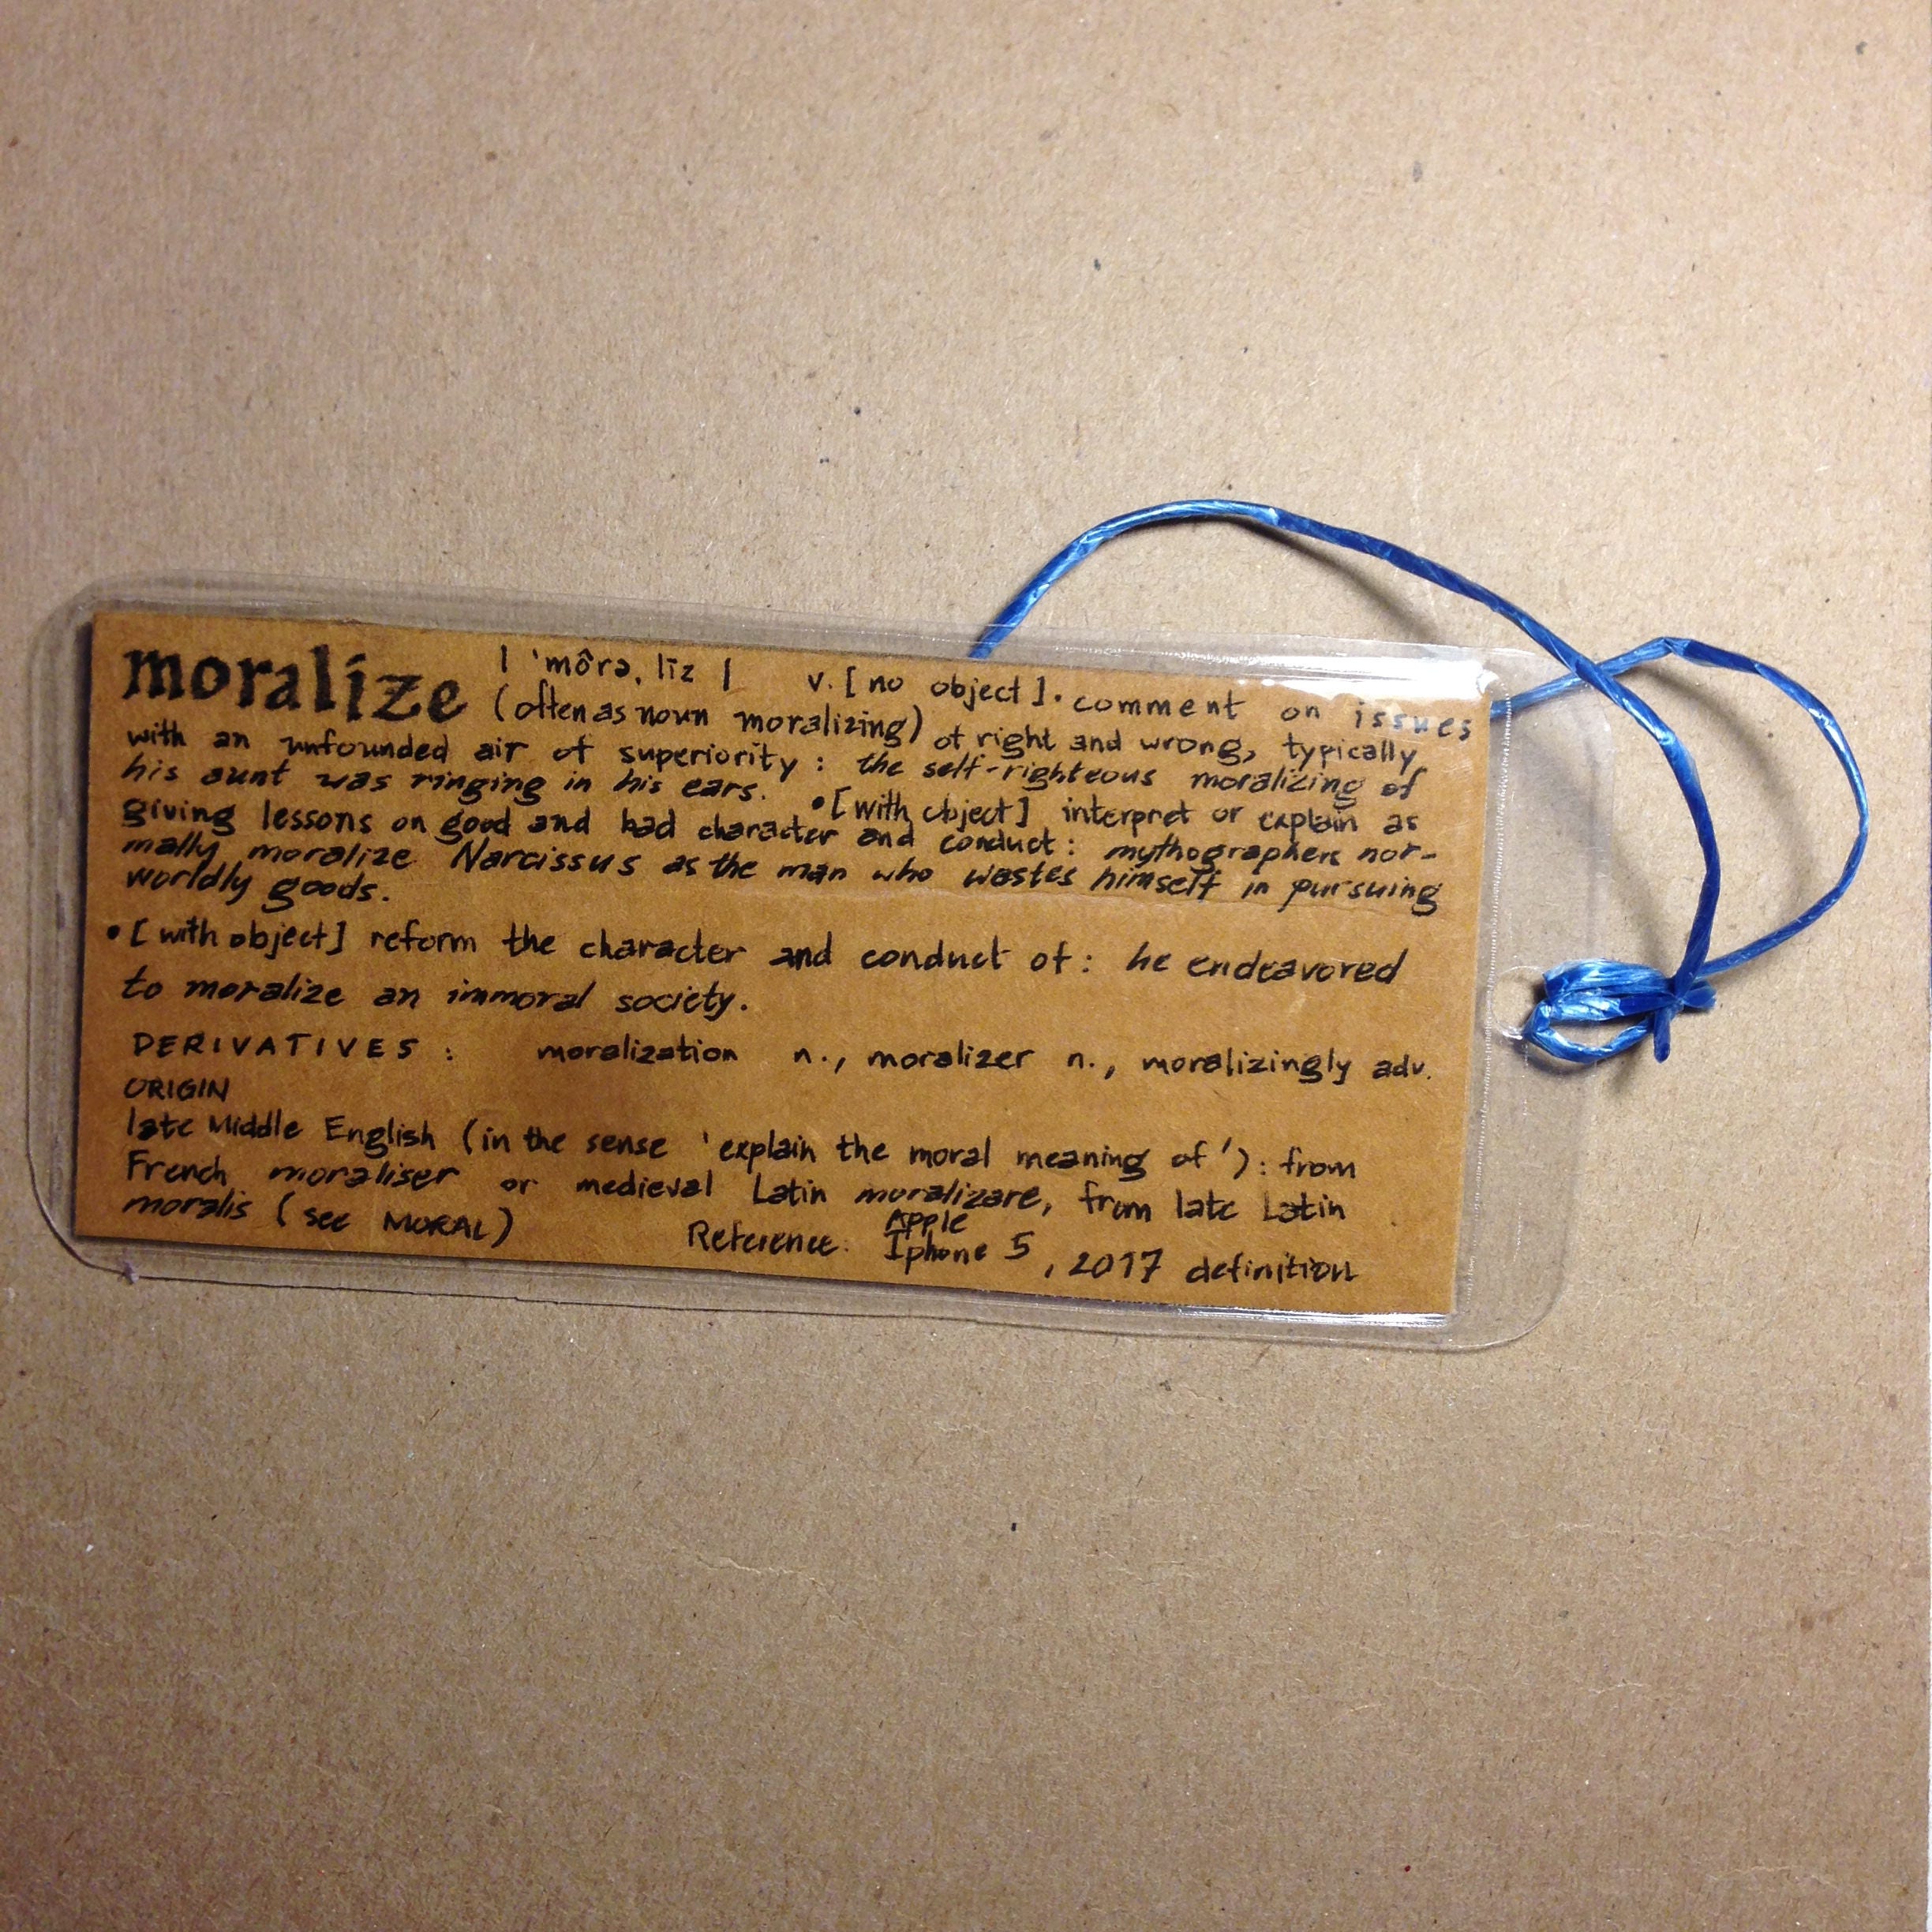 moralize | ˈmôrəˌlīz | v. [no object]. comment on issues
(often as noun moralizing) of right and wrong, typically
with an unfounded air of superiority : the self-righteous moralizing of
his aunt was ringing in his ears. •[with object] interpret or explain as
giving lessons on good and bad character and conduct : mythographers nor-
mally moralize Narcissus as the man who wastes himself in pursuing
worldly goods.
•[with object] reform the character and conduct of : he endeavored
to moralize an immoral society.
DERIVATIVES : moralization n., moralizer n., moralizingly adv.
ORIGIN
late Middle English (in the sense 'explain the moral meaning of') : from
French moraliser or medieval Latin moralizare, from late Latin
moralis (see MORAL)
Reference: Apple
Iphone 5, 2017 definition